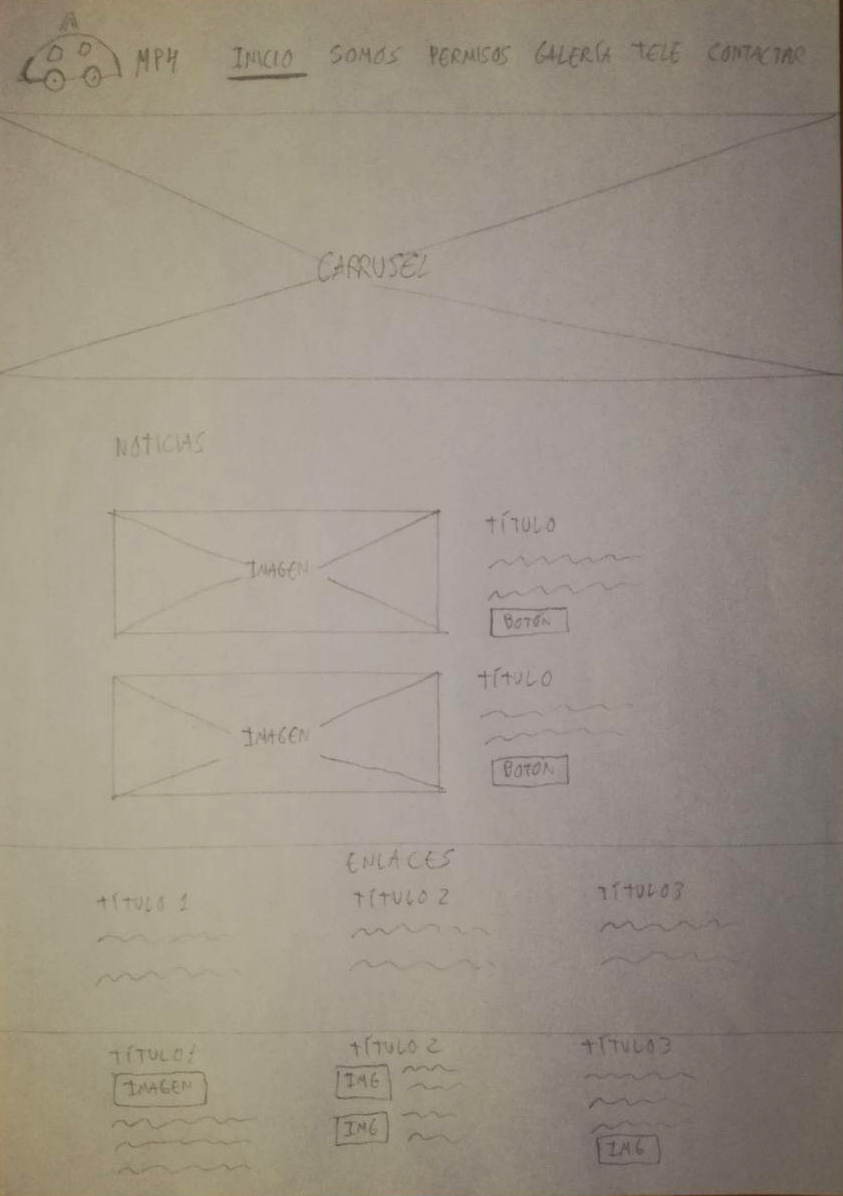 A
MP4 INICIO SOMOS PERMISOS GALERÍA TELE CONTACTAR
CARRUSEL
NOTICIAS
IMAGEN
TÍTULO
BOTÓN
IMAGEN
TÍTULO
BOTÓN
ENLACES
TÍTULO 1 TÍTULO 2 TÍTULO 3
TÍTULO 1 TÍTULO 2 TÍTULO 3
IMAGEN
IMG
IMG
IMG